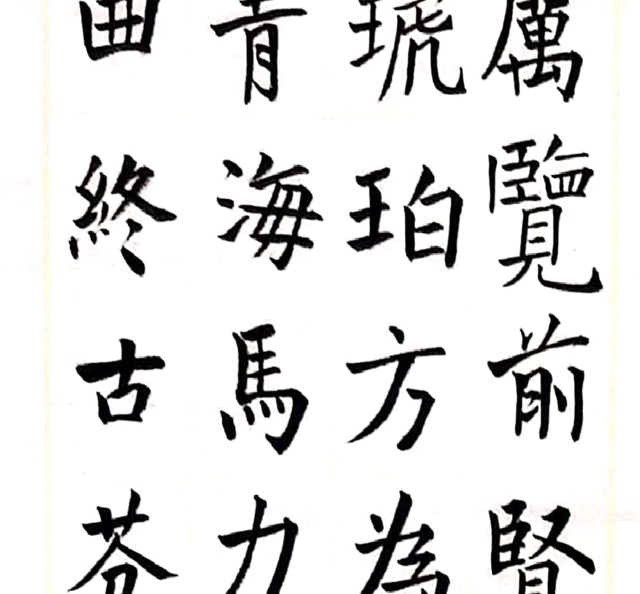 厲覽前賢
琥珀方為
青海馬力
曲終古